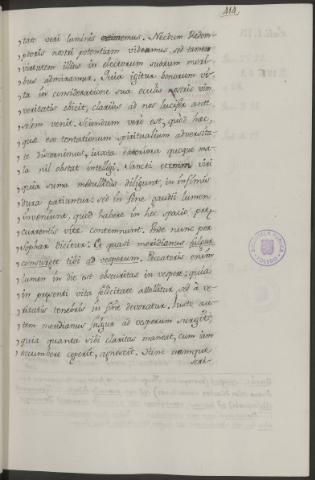 414
, tate veri luminis Nectum Redem-
, ptoris nostri potentiam videamus, sed tamen
, virtutem illius in electorum suorum mori-
, bus admiramur. Quia igitur bonorum vi-
, ta in consideratione sua oculis nostris vim
, veritatis elicit, claritas ad nos luciferi ante
, solem venit. Sciendum vero est, quod haec,
, quae ex tentationum spiritualium adversita-
, te discernimus, iuxta exteriora quoque ma-
, la nil obstat intellegi. Sancti etenim viri
, quia summa medullitus diligunt, in infimis
, dura patiuntur: sed in fine gaudii lumen
, inveniunt, quod habere in hoc spatio
, currentis vite contemnunt. Unde nunc per
, Sophar dicitur: Et quasi meridianus fulgor
, consurget tibi ad vesperum. Peccatoris enim
, lumen in die est obscuritas in vespere; quia
, in presenti vita felicitate attollitur, sed a ve-
, ritatis tenebris in fine devoratur. Iusto au-
, tem meridianus fulgor ad vesperum surget;
, quia quanta sibi claritas maneat, cum iam
, occumbere ceperit, agnoscit. Hinc namque
scri-
TOLEDO